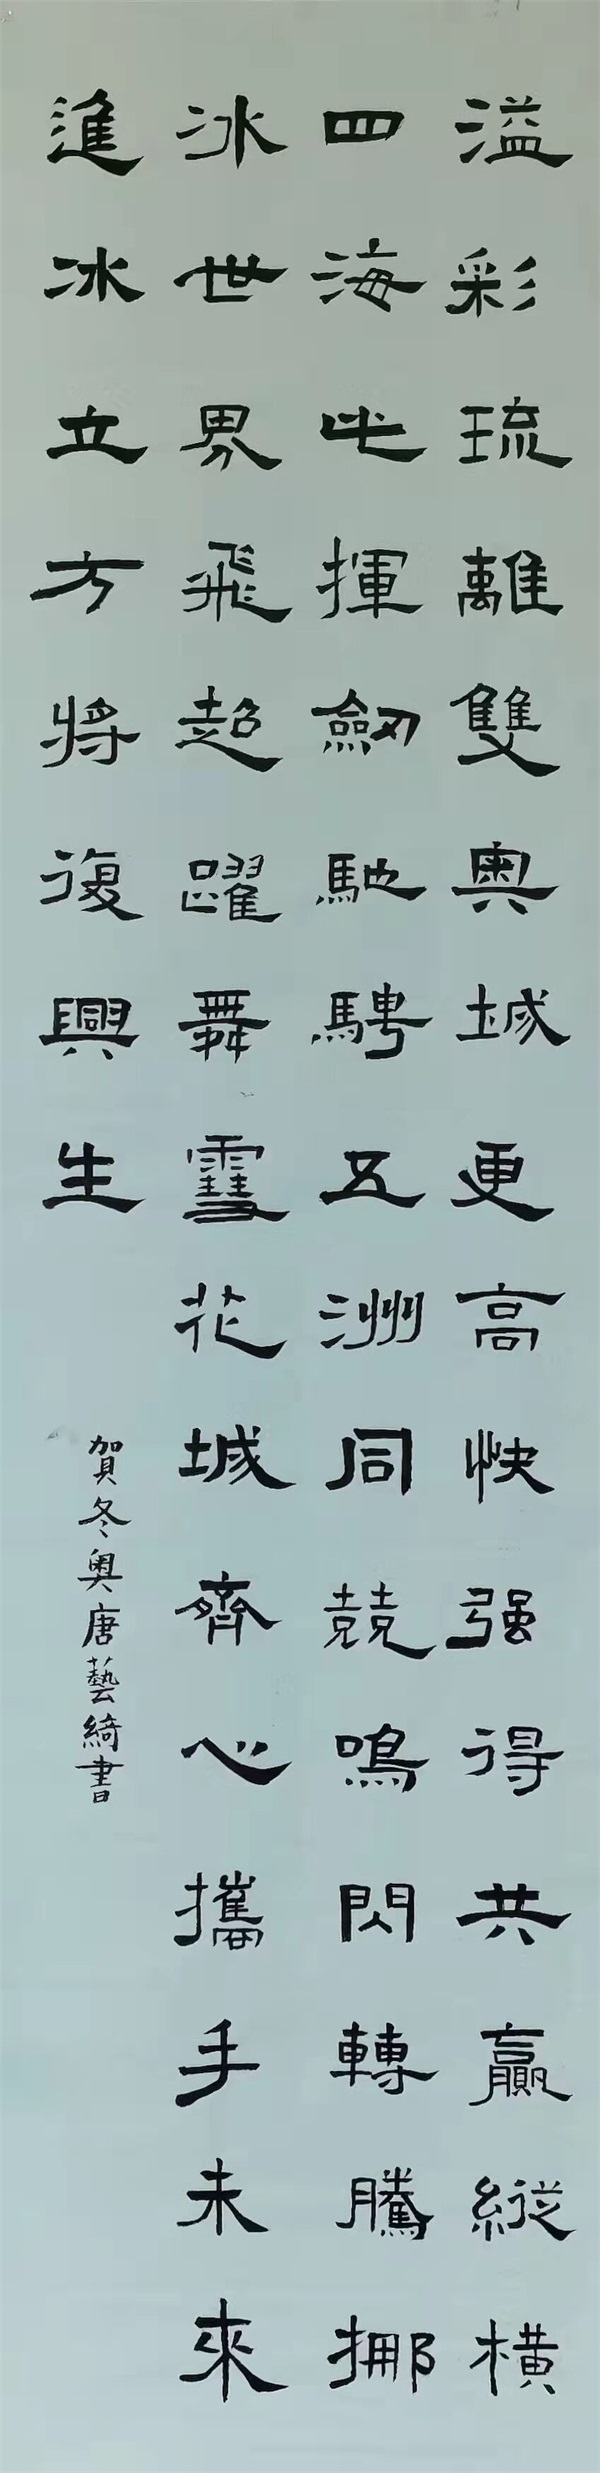 溢彩琉離雙奥城更高快强得共贏縱橫
四海此揮劒馳騁五洲同競鳴閃轉騰挪
冰世界飛超躍舞雪花城齊心攜手未來
進冰立方將復興生
賀冬奥唐藝綺書